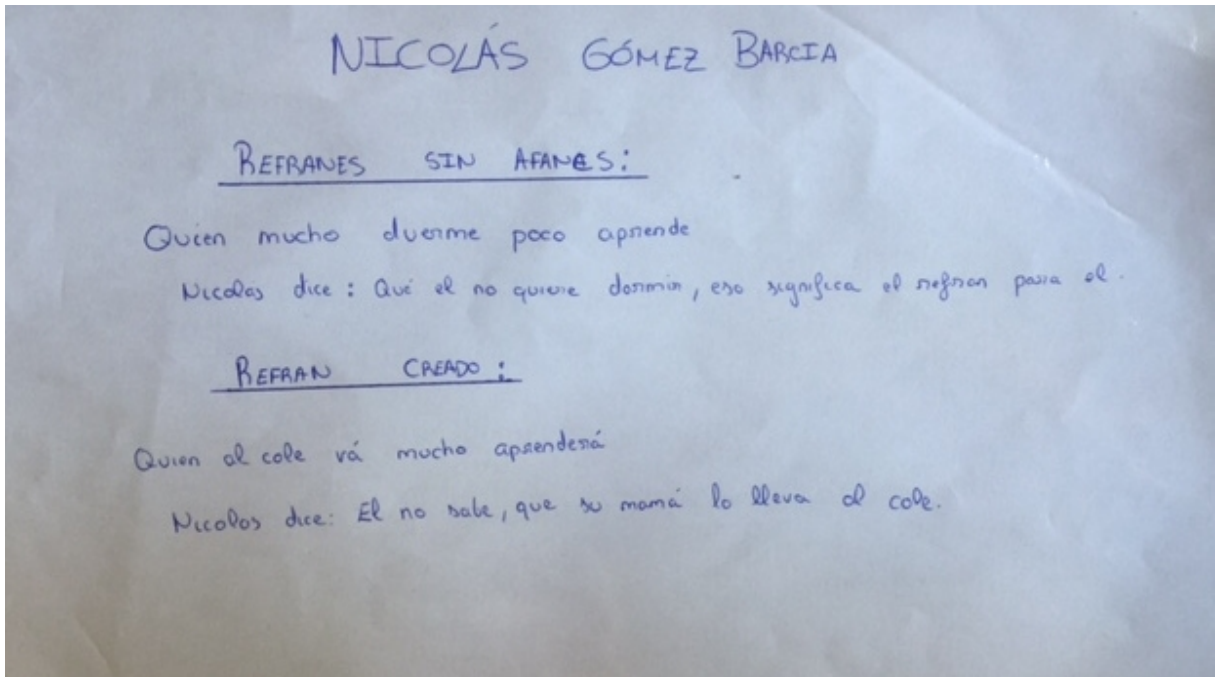 NICOLÁS GÓMEZ BARCIA
REFRANES SIN AFANES:
Quien mucho duerme poco aprende
Nicolas dice : Qué el no quiere dormir, eso significa el refran para el.
REFRAN CREADO :
Quien al cole vá mucho aprenderá
Nicolas dice: El no sabe, que su mamá lo lleva al cole.